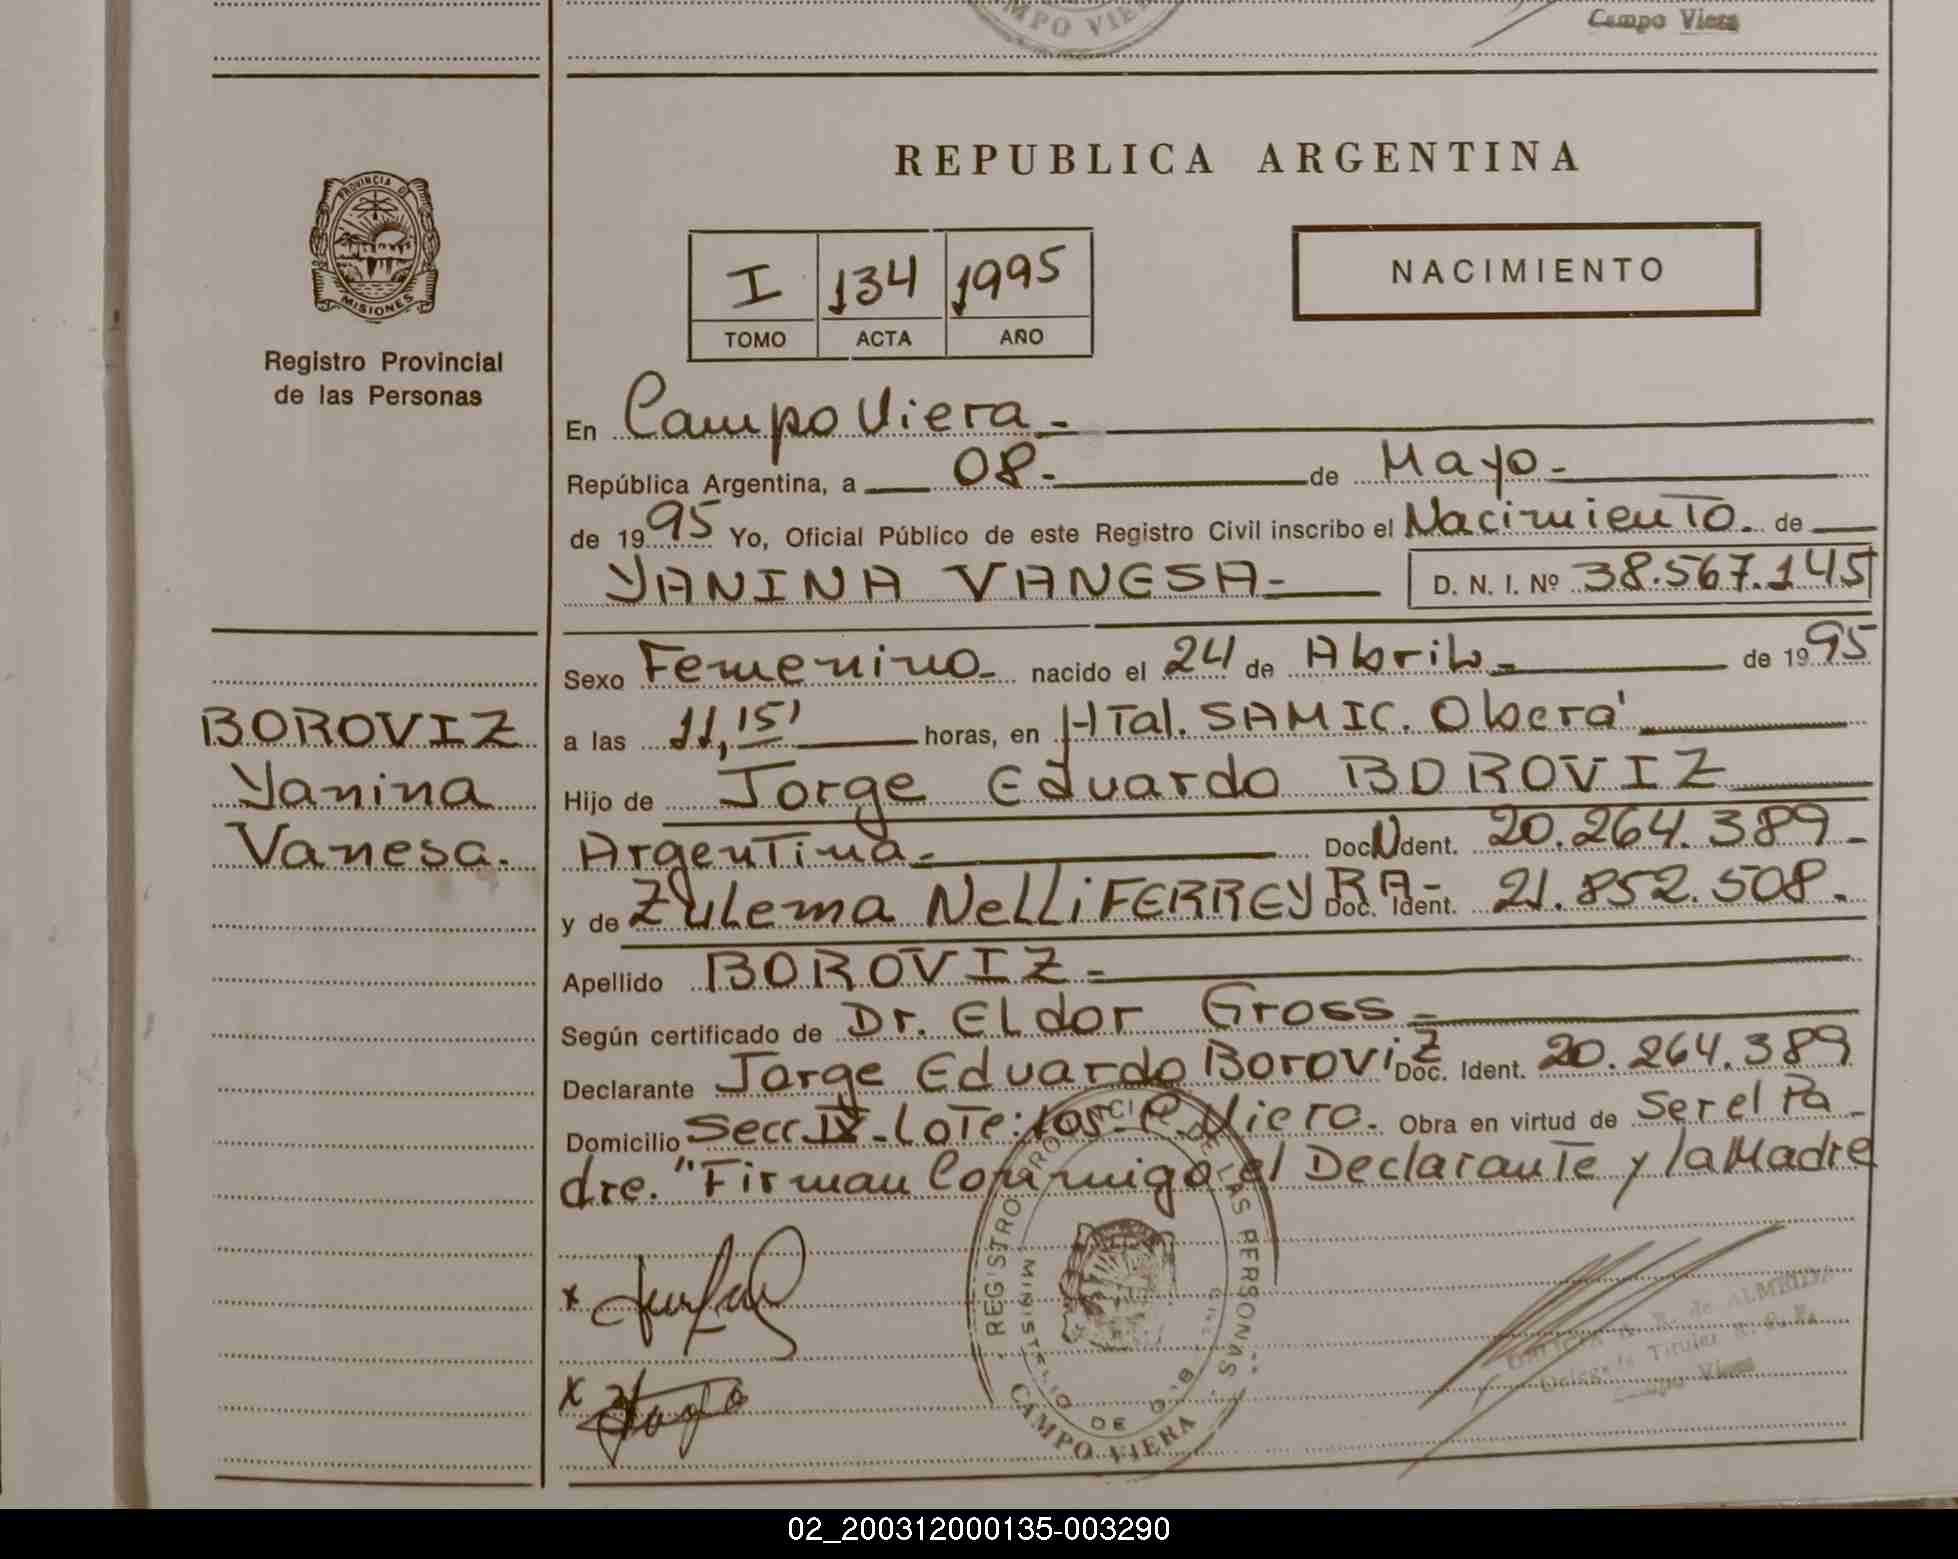 CAMPO VIERA
Campo Viera
PROVINCIA DE
MISIONES
Registro Provincial
de las Personas
REPUBLICA ARGENTINA
I 134 1995
TOMO ACTA AÑO
NACIMIENTO
En Campo Viera.-
República Argentina, a 08.- de Mayo.-
de 1995 Yo, Oficial Público de este Registro Civil inscribo el Nacimiento. de
YANINA VANESA- D. N. I. Nº 38.567.145
Sexo Femenino.- nacido el 24 de Abril.- de 1995
BOROVIZ
Yanina
Vanesa.
a las 11,15' horas, en HTal. SAMIC. Oberá
Hijo de Jorge Eduardo BOROVIZ
Argentina.- Doc. Ident. 20.264.389.-
y de Zulema Nelli FERREYRA.- Doc. Ident. 21.852.508.-
Apellido BOROVIZ.-
Según certificado de Dr. Eldor Gross.-
Declarante Jorge Eduardo Boroviz Doc. Ident. 20.264.389
Domicilio Secc. IV-LoTe:105-C.Viera. Obra en virtud de Ser el Pa-
dre. "Firman Conmigo el Declarante y la Madre
x
x
REGISTRO PROVINCIAL DE LAS PERSONAS
MINISTERIO DE GOB
CAMPO VIERA
de ALMEIDA
Delegada Titular R. P. P.
Campo Viera
02_200312000135-003290